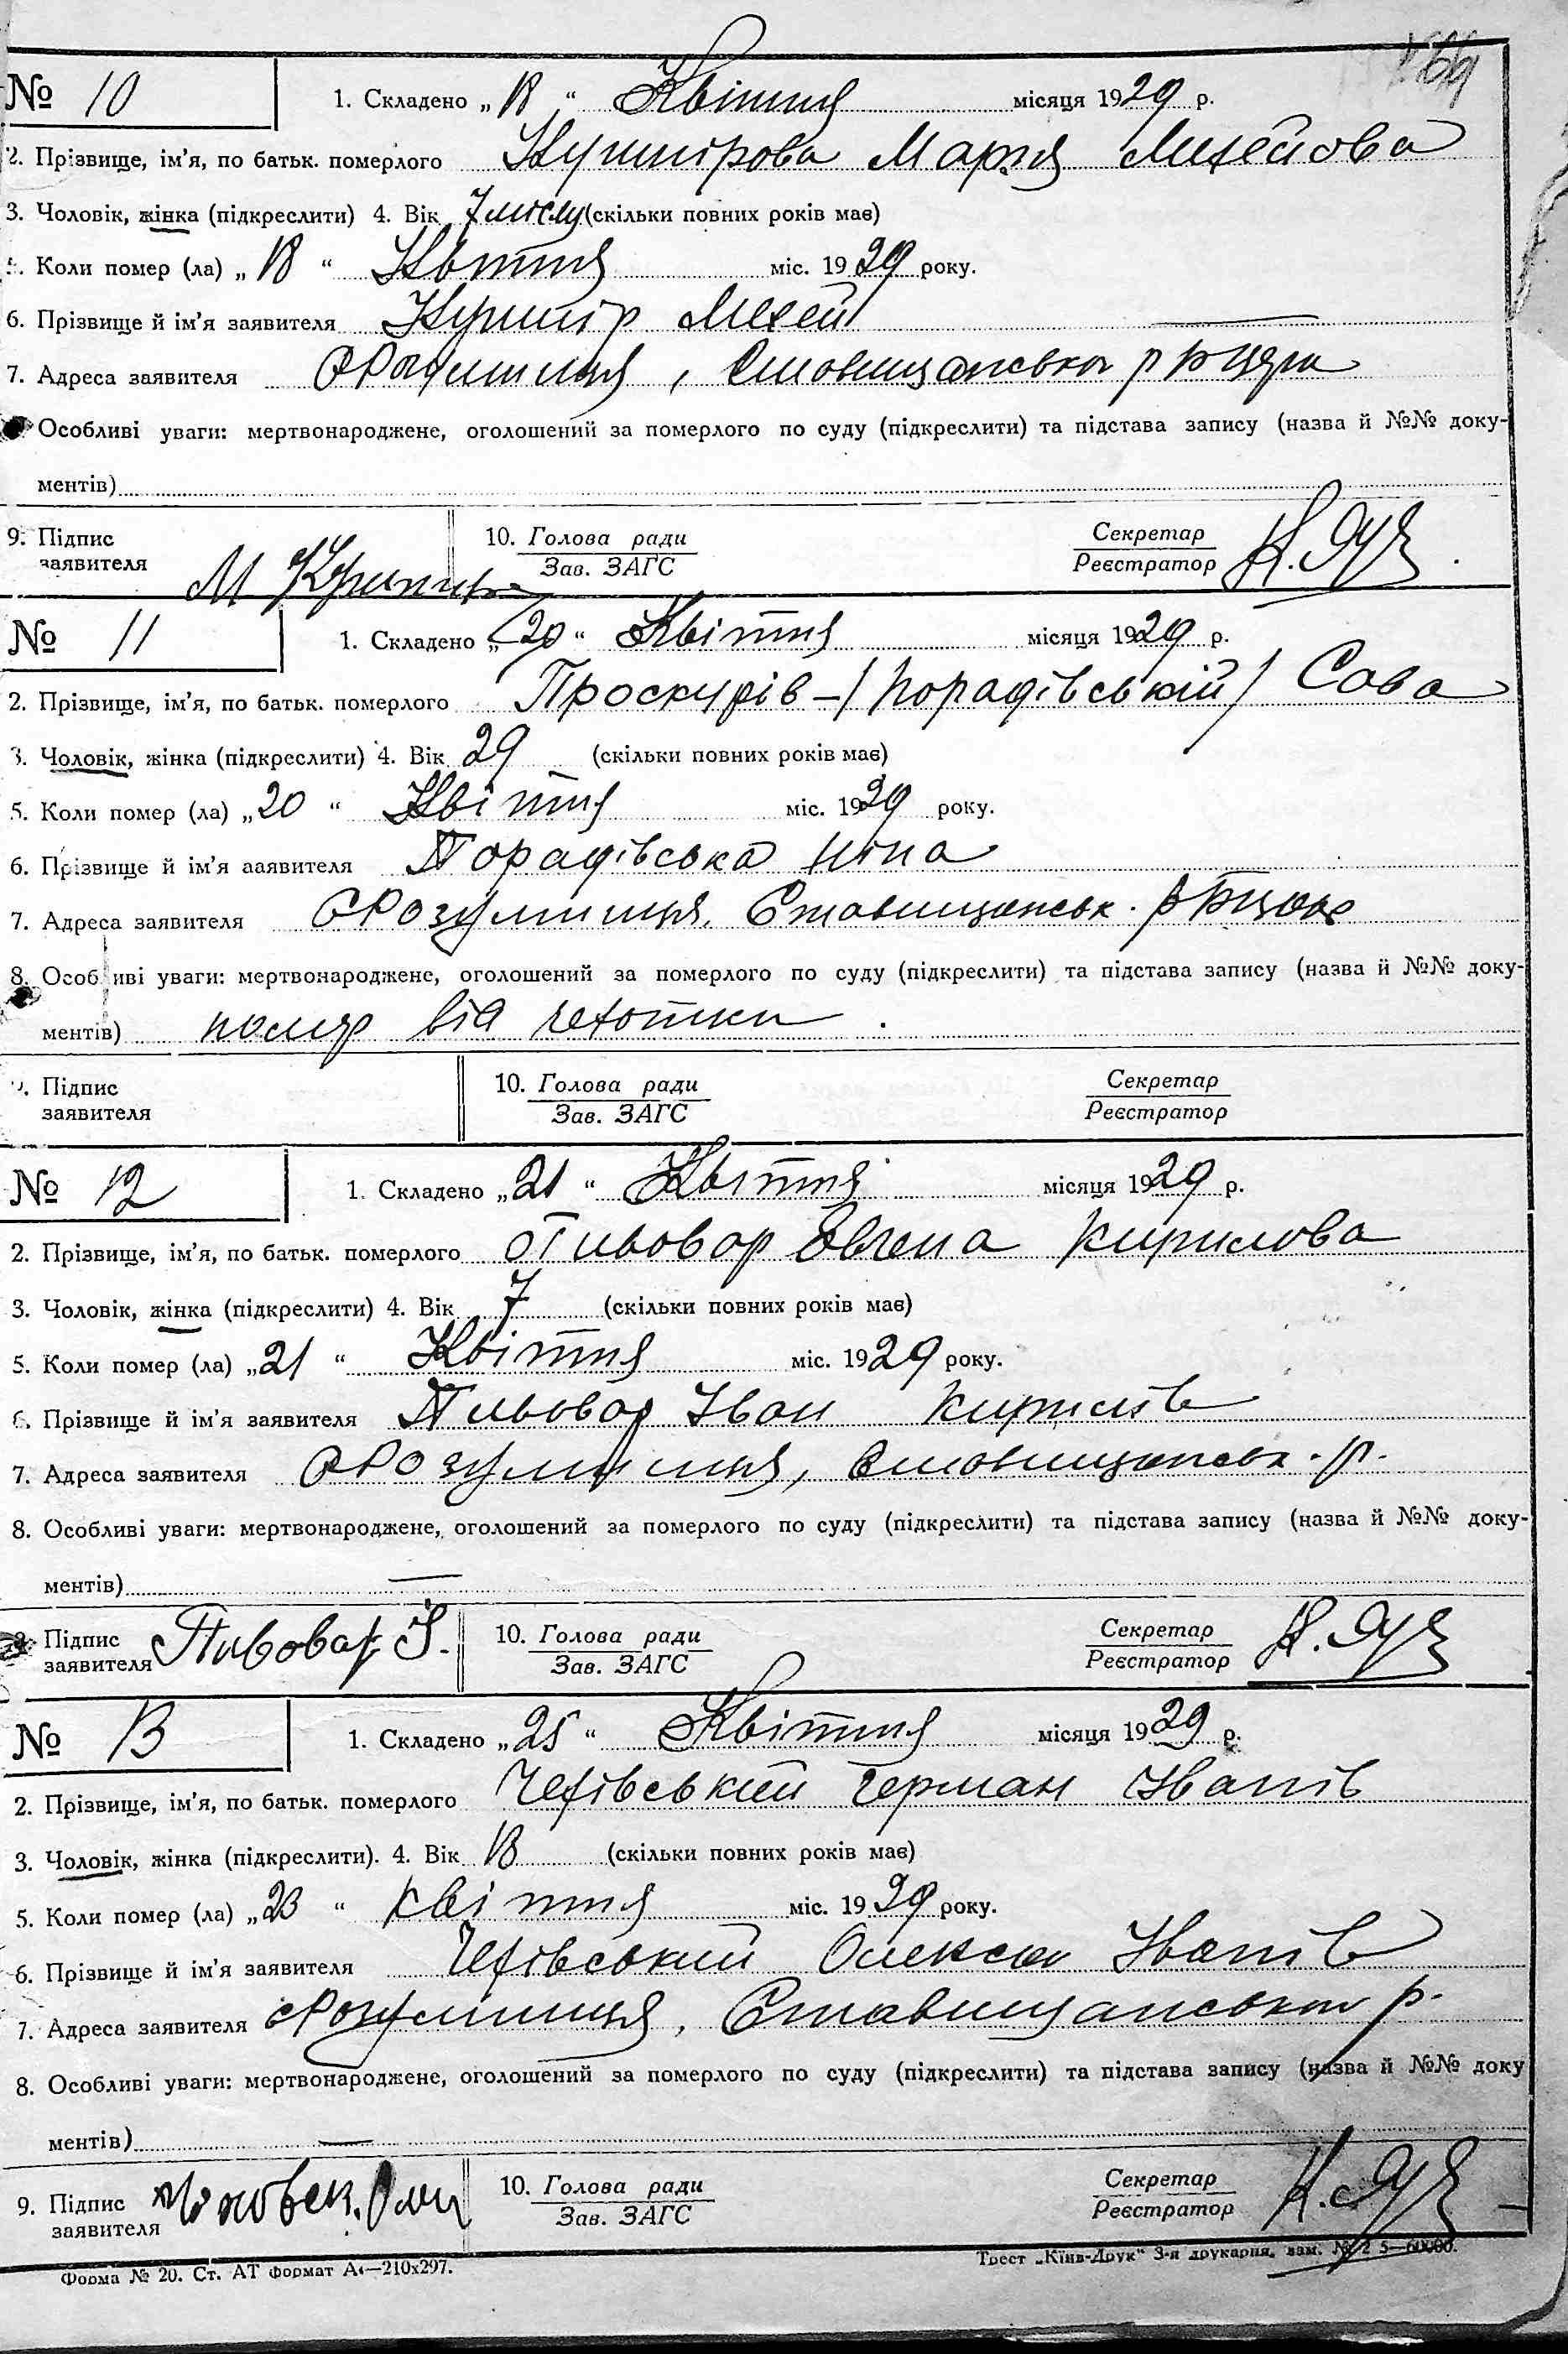 № 10 1. Складено „ 13 “ Квітня місяця 1929 р.
2. Прізвище, ім'я, по батьк. померлого Кушнірова Марія Михейова
3. Чоловік, жінка (підкреслити) 4. Вік 7 місяц (скільки повних років має)
5. Коли помер (ла) „ 13 “ Квітня міс. 1929 року.
6. Прізвище й ім'я заявителя Кушнір Михей
7. Адреса заявителя с Розумниця, Ставищанськ р БЦер
Особливі уваги: мертвонароджене, оголошений за померлого по суду (підкреслити) та підстава запису (назва й №№ доку-
ментів)
9. Підпис 10. Голова ради Секретар
заявителя М Кушнір Зав. ЗАГС Реєстратор
№ 11 1. Складено „20“ Квітня місяця 1929 р.
2. Прізвище, ім'я, по батьк. померлого Проскурів - /Порадівській/ Сава
3. Чоловік, жінка (підкреслити) 4. Вік 29 (скільки повних років має)
5. Коли помер (ла) „20 “ Квітня міс. 1929 року.
6. Прізвище й ім'я ааявителя Порадівська Ніна
7. Адреса заявителя с Розумниця, Ставищанськ. р БЦок
8. Особливі уваги: мертвонароджене, оголошений за померлого по суду (підкреслити) та підстава запису (назва й №№ доку-
ментів) помер від чехотки.
9. Підпис 10. Голова ради Секретар
заявителя Зав. ЗАГС Реєстратор
№ 12 1. Складено „21 “ Квітня місяця 1929 р.
2. Прізвище, ім'я, по батьк. померлого Пивовар Євгена Кирилова
3. Чоловік, жінка (підкреслити) 4. Вік 7 (скільки повних років має)
5. Коли помер (ла) „21 “ Квітня міс. 1929 року.
6. Прізвище й ім'я заявителя Пивовар Іван Кирилів
7. Адреса заявителя с Розумниця, Ставищанськ. р.
8. Особливі уваги: мертвонароджене, оголошений за померлого по суду (підкреслити) та підстава запису (назва й №№ доку-
ментів) —
9. Підпис 10. Голова ради Секретар
заявителя Пивовар І. Зав. ЗАГС Реєстратор
№ 13 1. Складено „25 “ Квітня місяця 1929 р.
2. Прізвище, ім'я, по батьк. померлого Чехівський Герман Іванів
3. Чоловік, жінка (підкреслити). 4. Вік 13 (скільки повних років має)
5. Коли помер (ла) „23 “ квітня міс. 1929 року.
6. Прізвище й ім'я заявителя Чехівський Олекса Іванів
7. Адреса заявителя с Розумниця, Ставищанськ р.
8. Особливі уваги: мертвонароджене, оголошений за померлого по суду (підкреслити) та підстава запису (назва й №№ доку
ментів) —
9. Підпис 10. Голова ради Секретар
заявителя Зав. ЗАГС Реєстратор
Форма № 20. Ст. АТ Формат А4—210x297. Трест „Київ-Друк“ 3-я друкарня, зам. №